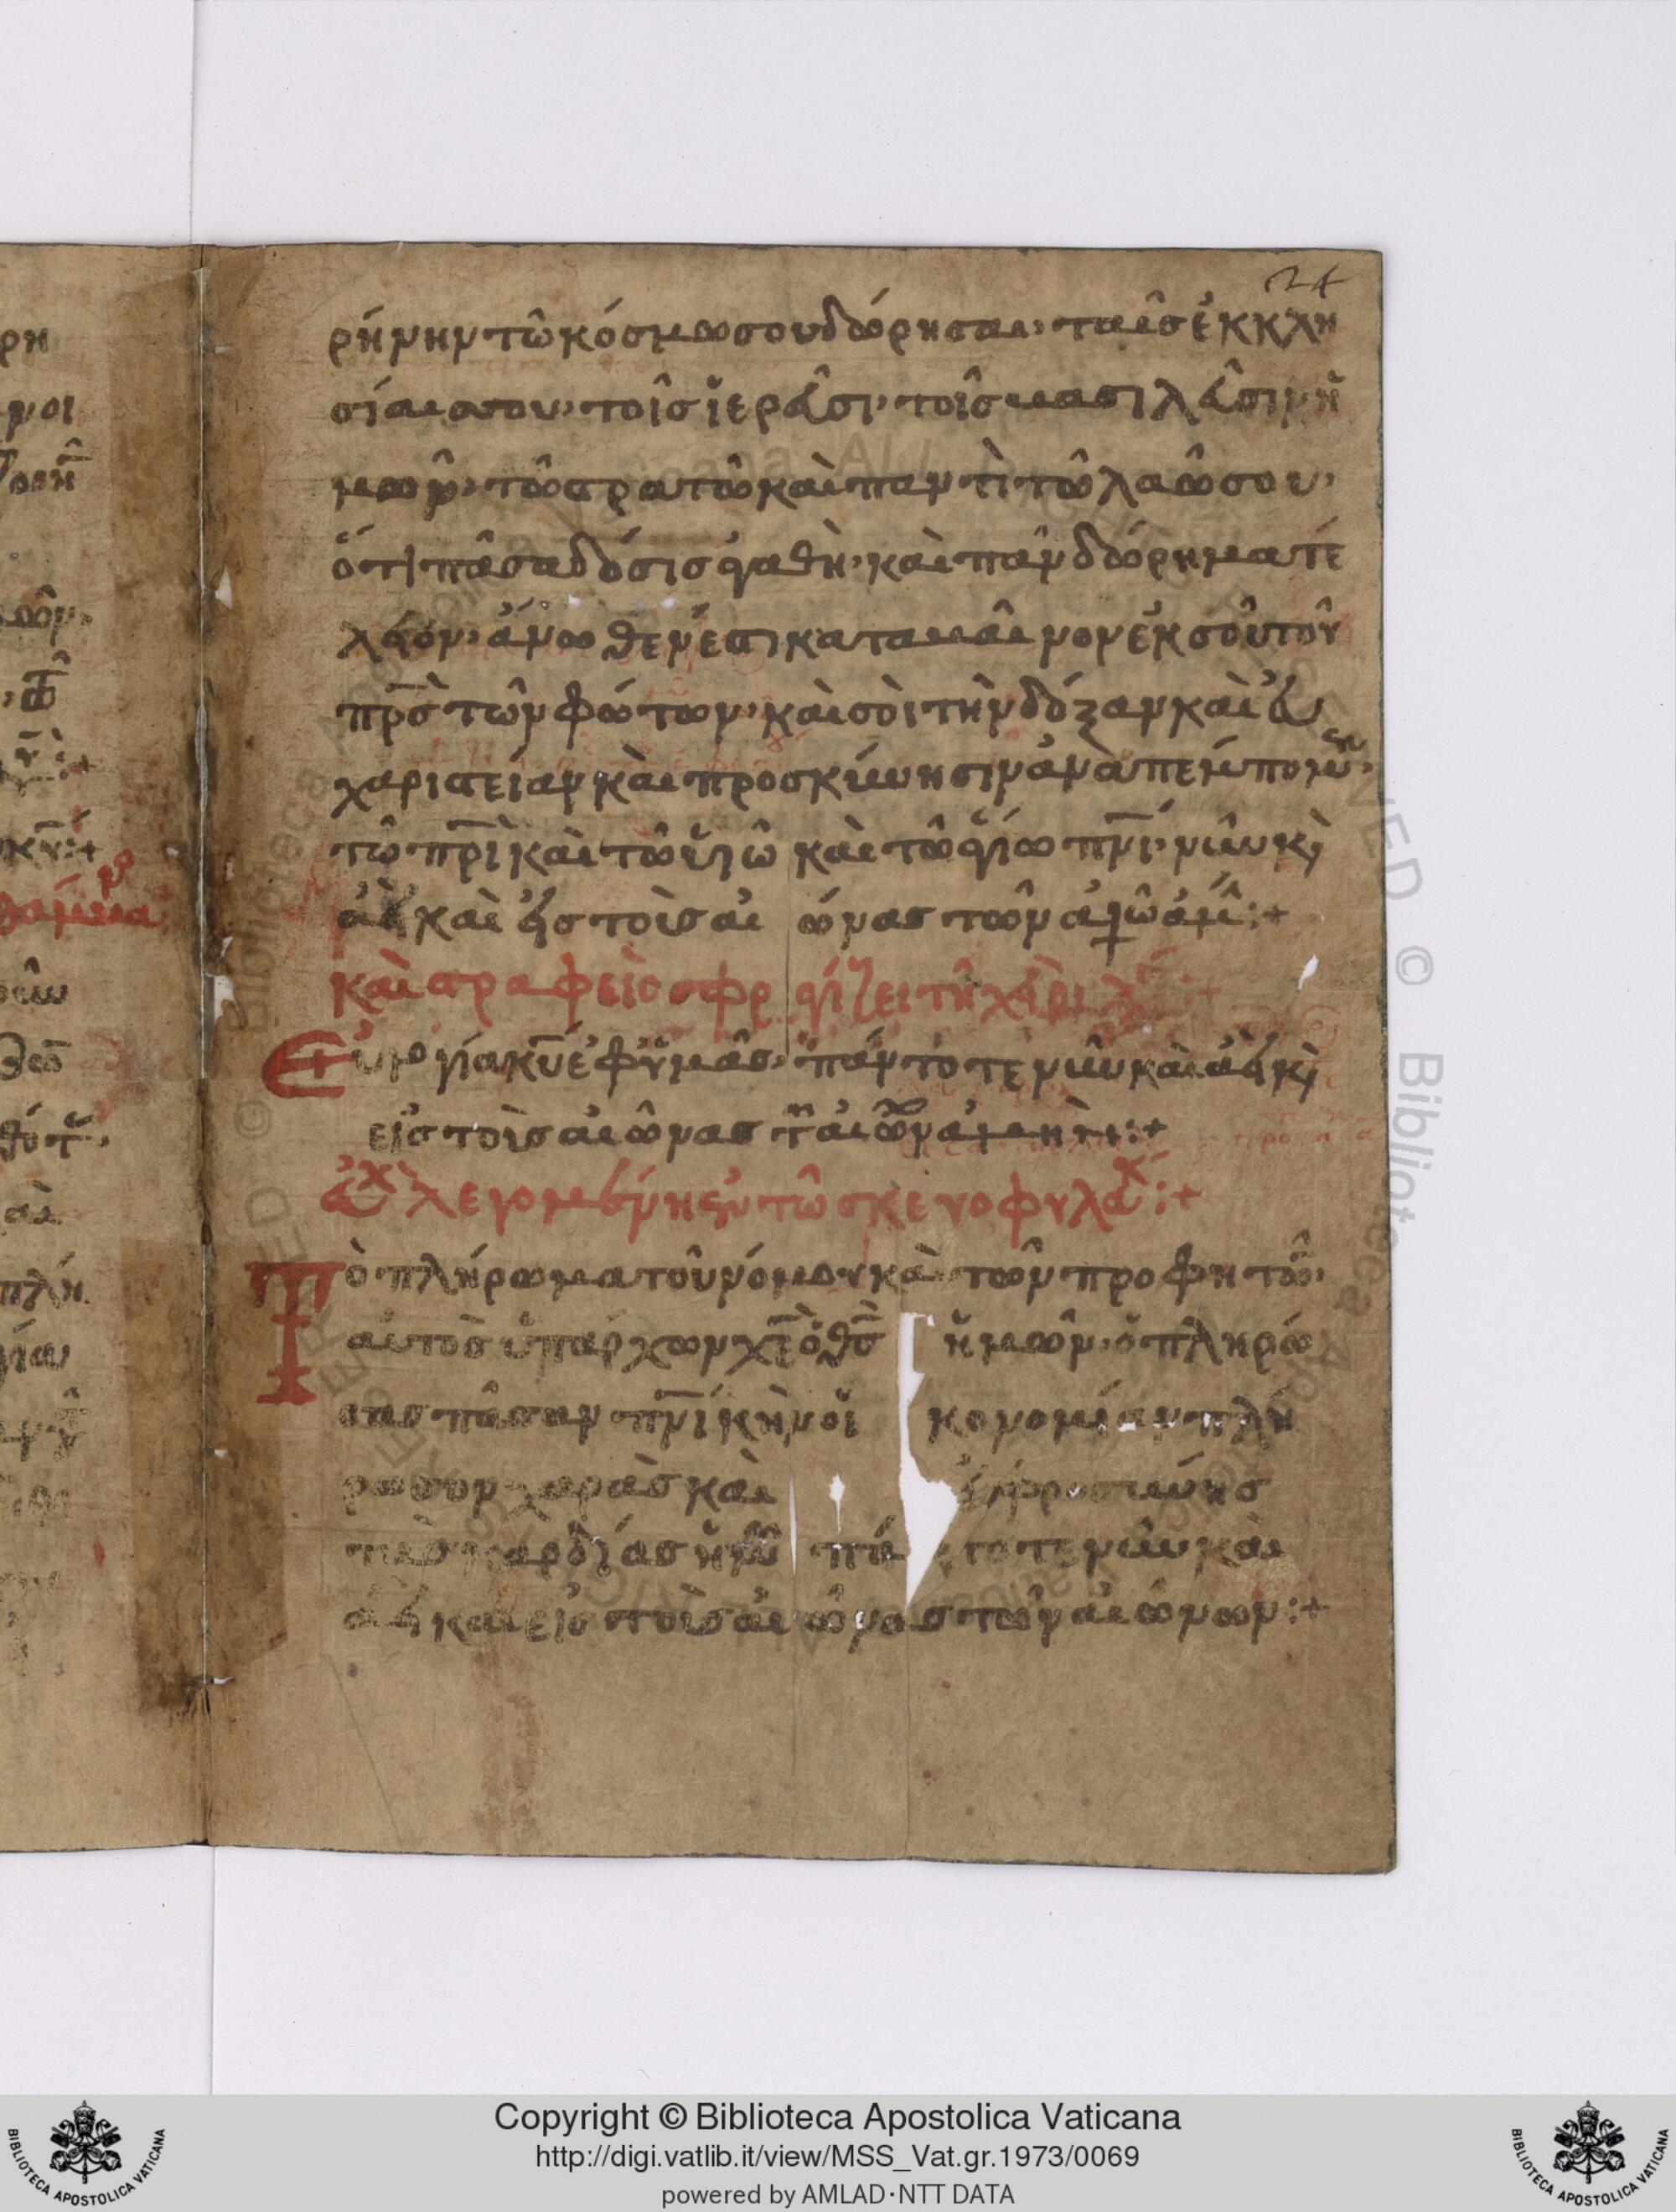 24
ρήνην τῶ κόσμω σου δώρησαι· ταῖς ἐκκλη
σίαις σου· τοῖς ἱερᾶσι· τοῖς βασιλᾶσιν ἡ
μῶν· τῶ στρατῶ καὶ παντὶ τῶ λαῶ σου·
ὅτι πᾶσα δόσις ἀγαθὴ· καὶ πᾶν δώρημα τέ
λιον· ἄνωθέν ἐστι καταβαῖνον ἐκ σοῦ τοῦ
πρ̅ς τῶν φώτων· καὶ σοὶ τὴν δόξαν καὶ εὐ
χαριστείαν καὶ προσκύνησιν ἀναπέμπομεν·
τῶ πρ̅ὶ καὶ τῶ υἱῶ καὶ τῶ ἁγίω πν̅ι· νῦν κ(αὶ)
ἀεὶ καὶ εἰς τοὺς αἰῶνας τῶν αἰώ ἀμ:+
καὶ στραφεὶς σφραγίζει τῆ χειρὶ λέ:+
Εὐλογία κυ̅ ἐφ' ὑμᾶς· πάντοτε νῦν καὶ ἀεὶ κ(αὶ)
εἰς τοὺς αἰῶνας τῶν αἰώνων ἀμὴν:+
εὐχ λεγομένη ἐν τῶ σκευοφυλακ:+
Τὸ πλήρωμα τοῦ νόμου κὰ τῶν προφητῶν·
αὐτὸς ὑπάρχων χε̅ ὁ θς̅ ἡμῶν· ὁ πληρώ
σας πᾶσαν πρ̅ικὴν οἰκονομίαν πλή
ρωσον χαρὰς καὶ εὐφροσύνης
τὰς καρδίας ἡμῶν πάντοτε νῦν καὶ
ἀεὶ καὶ εἰς τοὺς αἰῶνας τῶν αἰώνων:+
Copyright © Biblioteca Apostolica Vaticana
http://digi.vatlib.it/view/MSS_Vat.gr.1973/0069
powered by AMLAD·NTT DATA
BIBLIOTECA APOSTOLICA VATICANA
BIBLIOTECA APOSTOLICA VATICANA